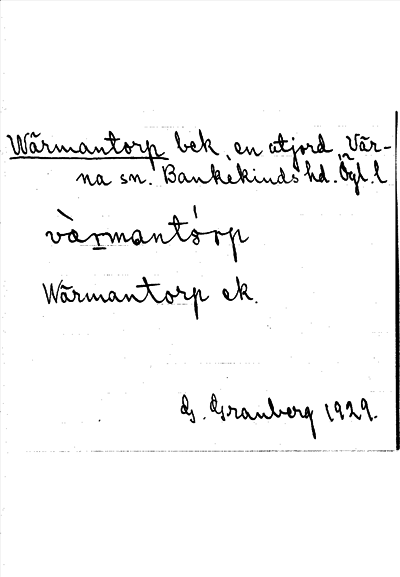 Wärmantorp bek. en utjord Vär-
na sn. Bankekinds hd. Ögl. l
và̀rmantórp
Wärmantorp ek.
G. Granberg 1929.